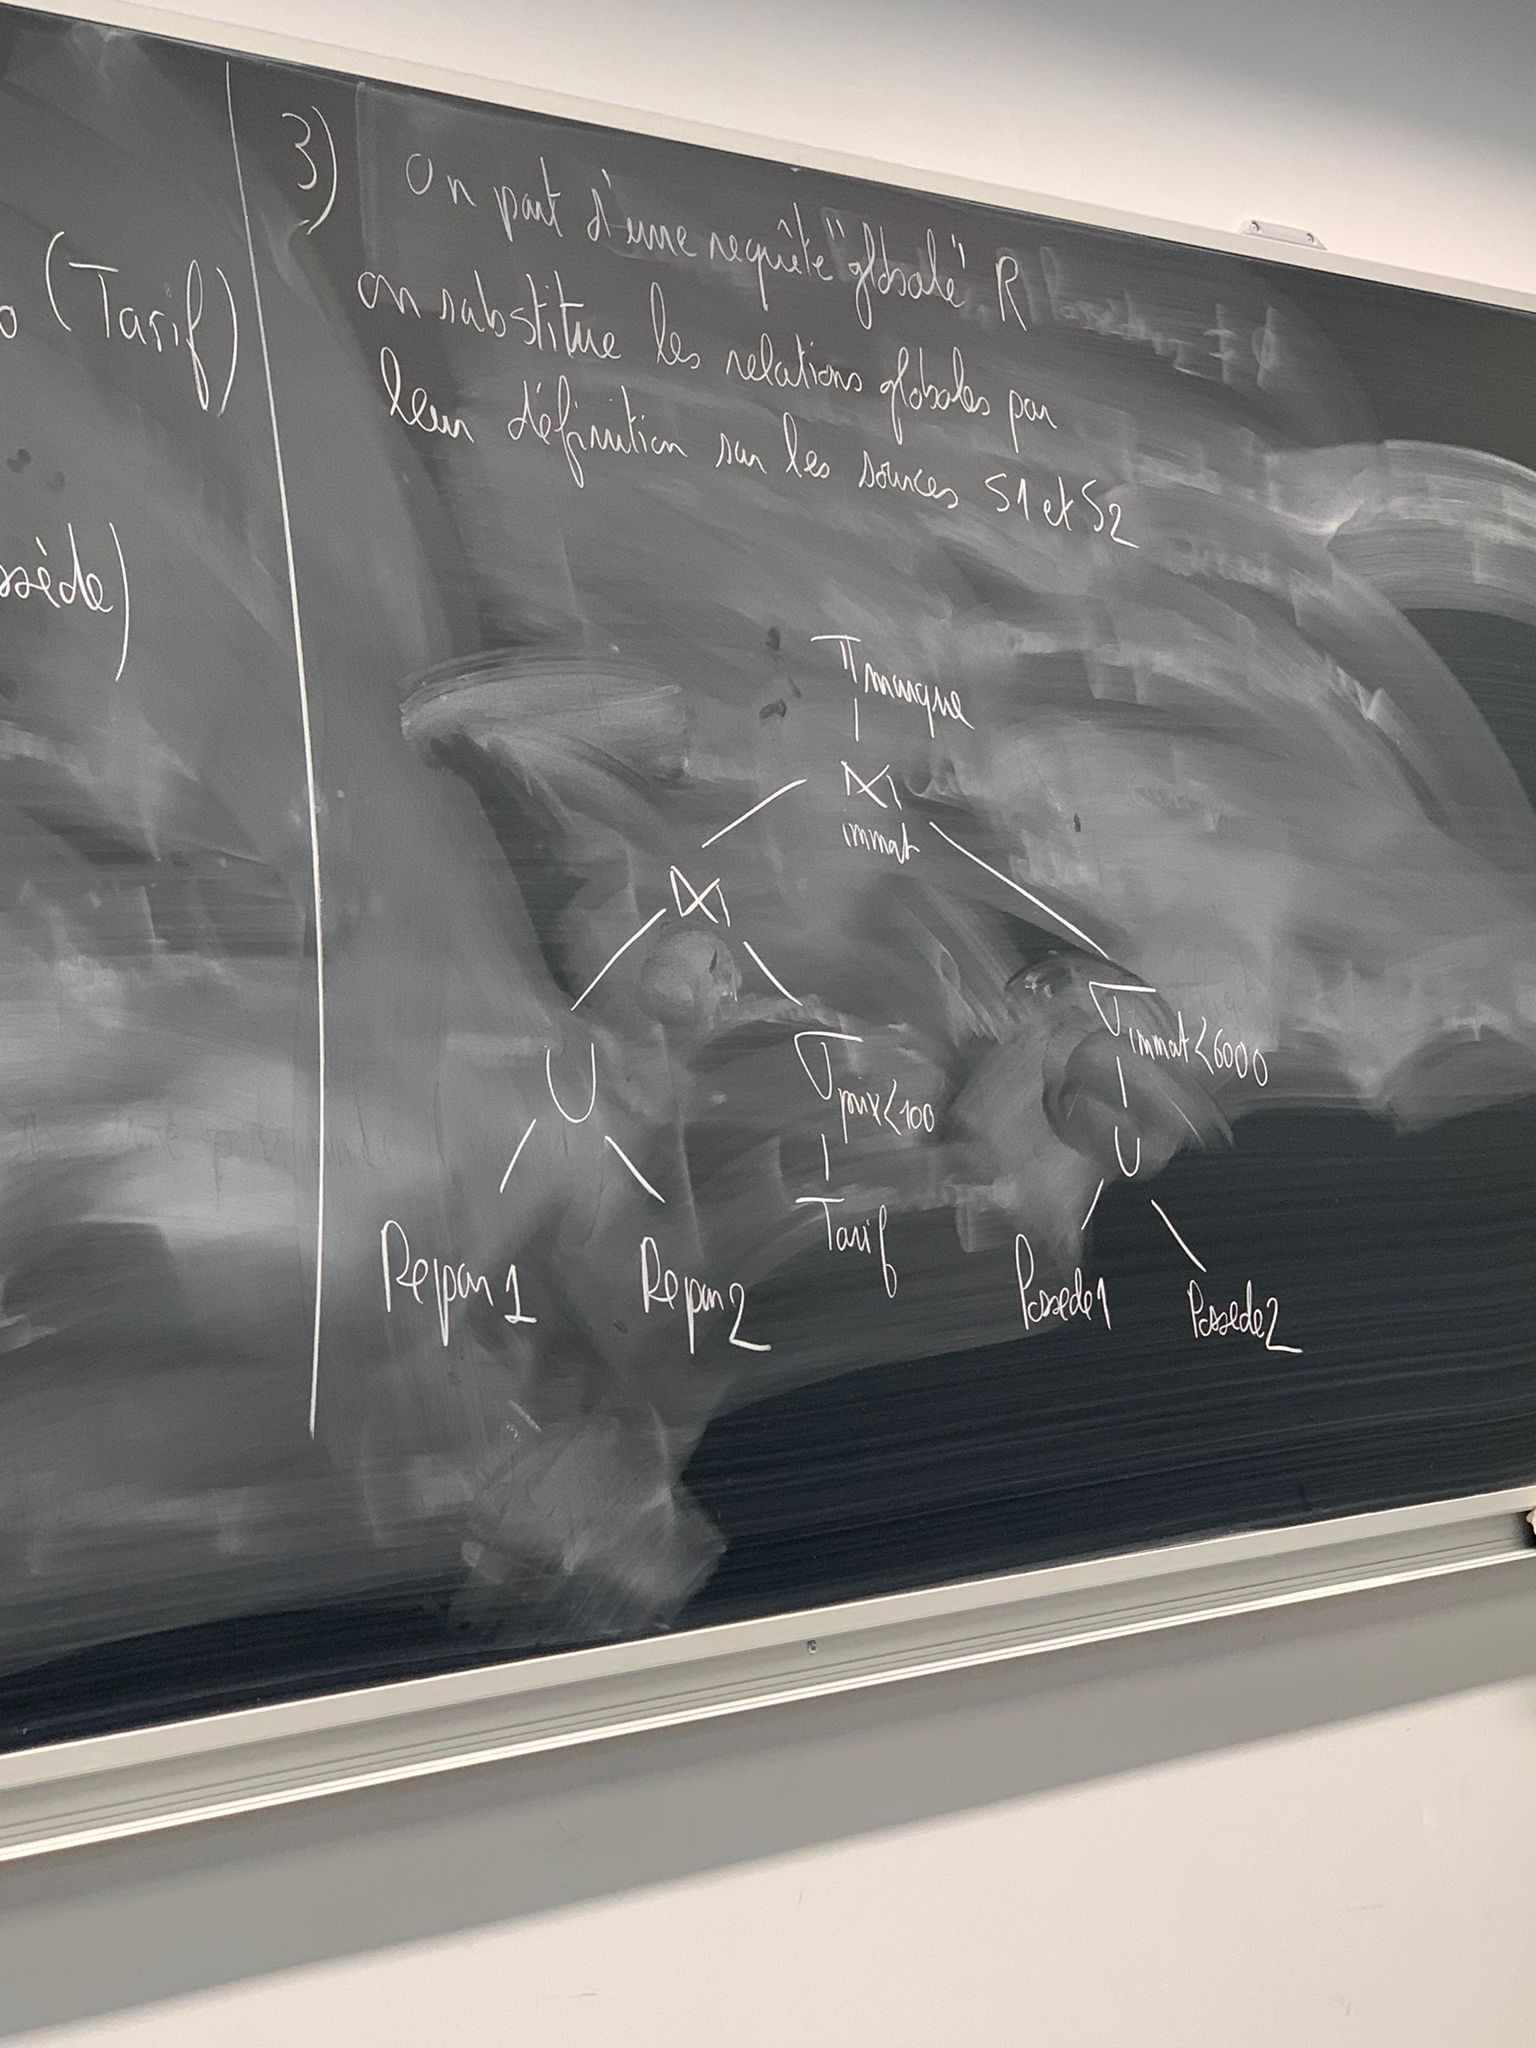 (Tarif)
ssède)
3) On part d'une requête "globale" R
on substitue les relations globales par
leur définition sur les sources S1 et S2
π marque
⋈
immat
⋈
∪ σ prix<100 σ immat<6000
∪
Repar1 Repar2 Tarif Possede1 Possede2